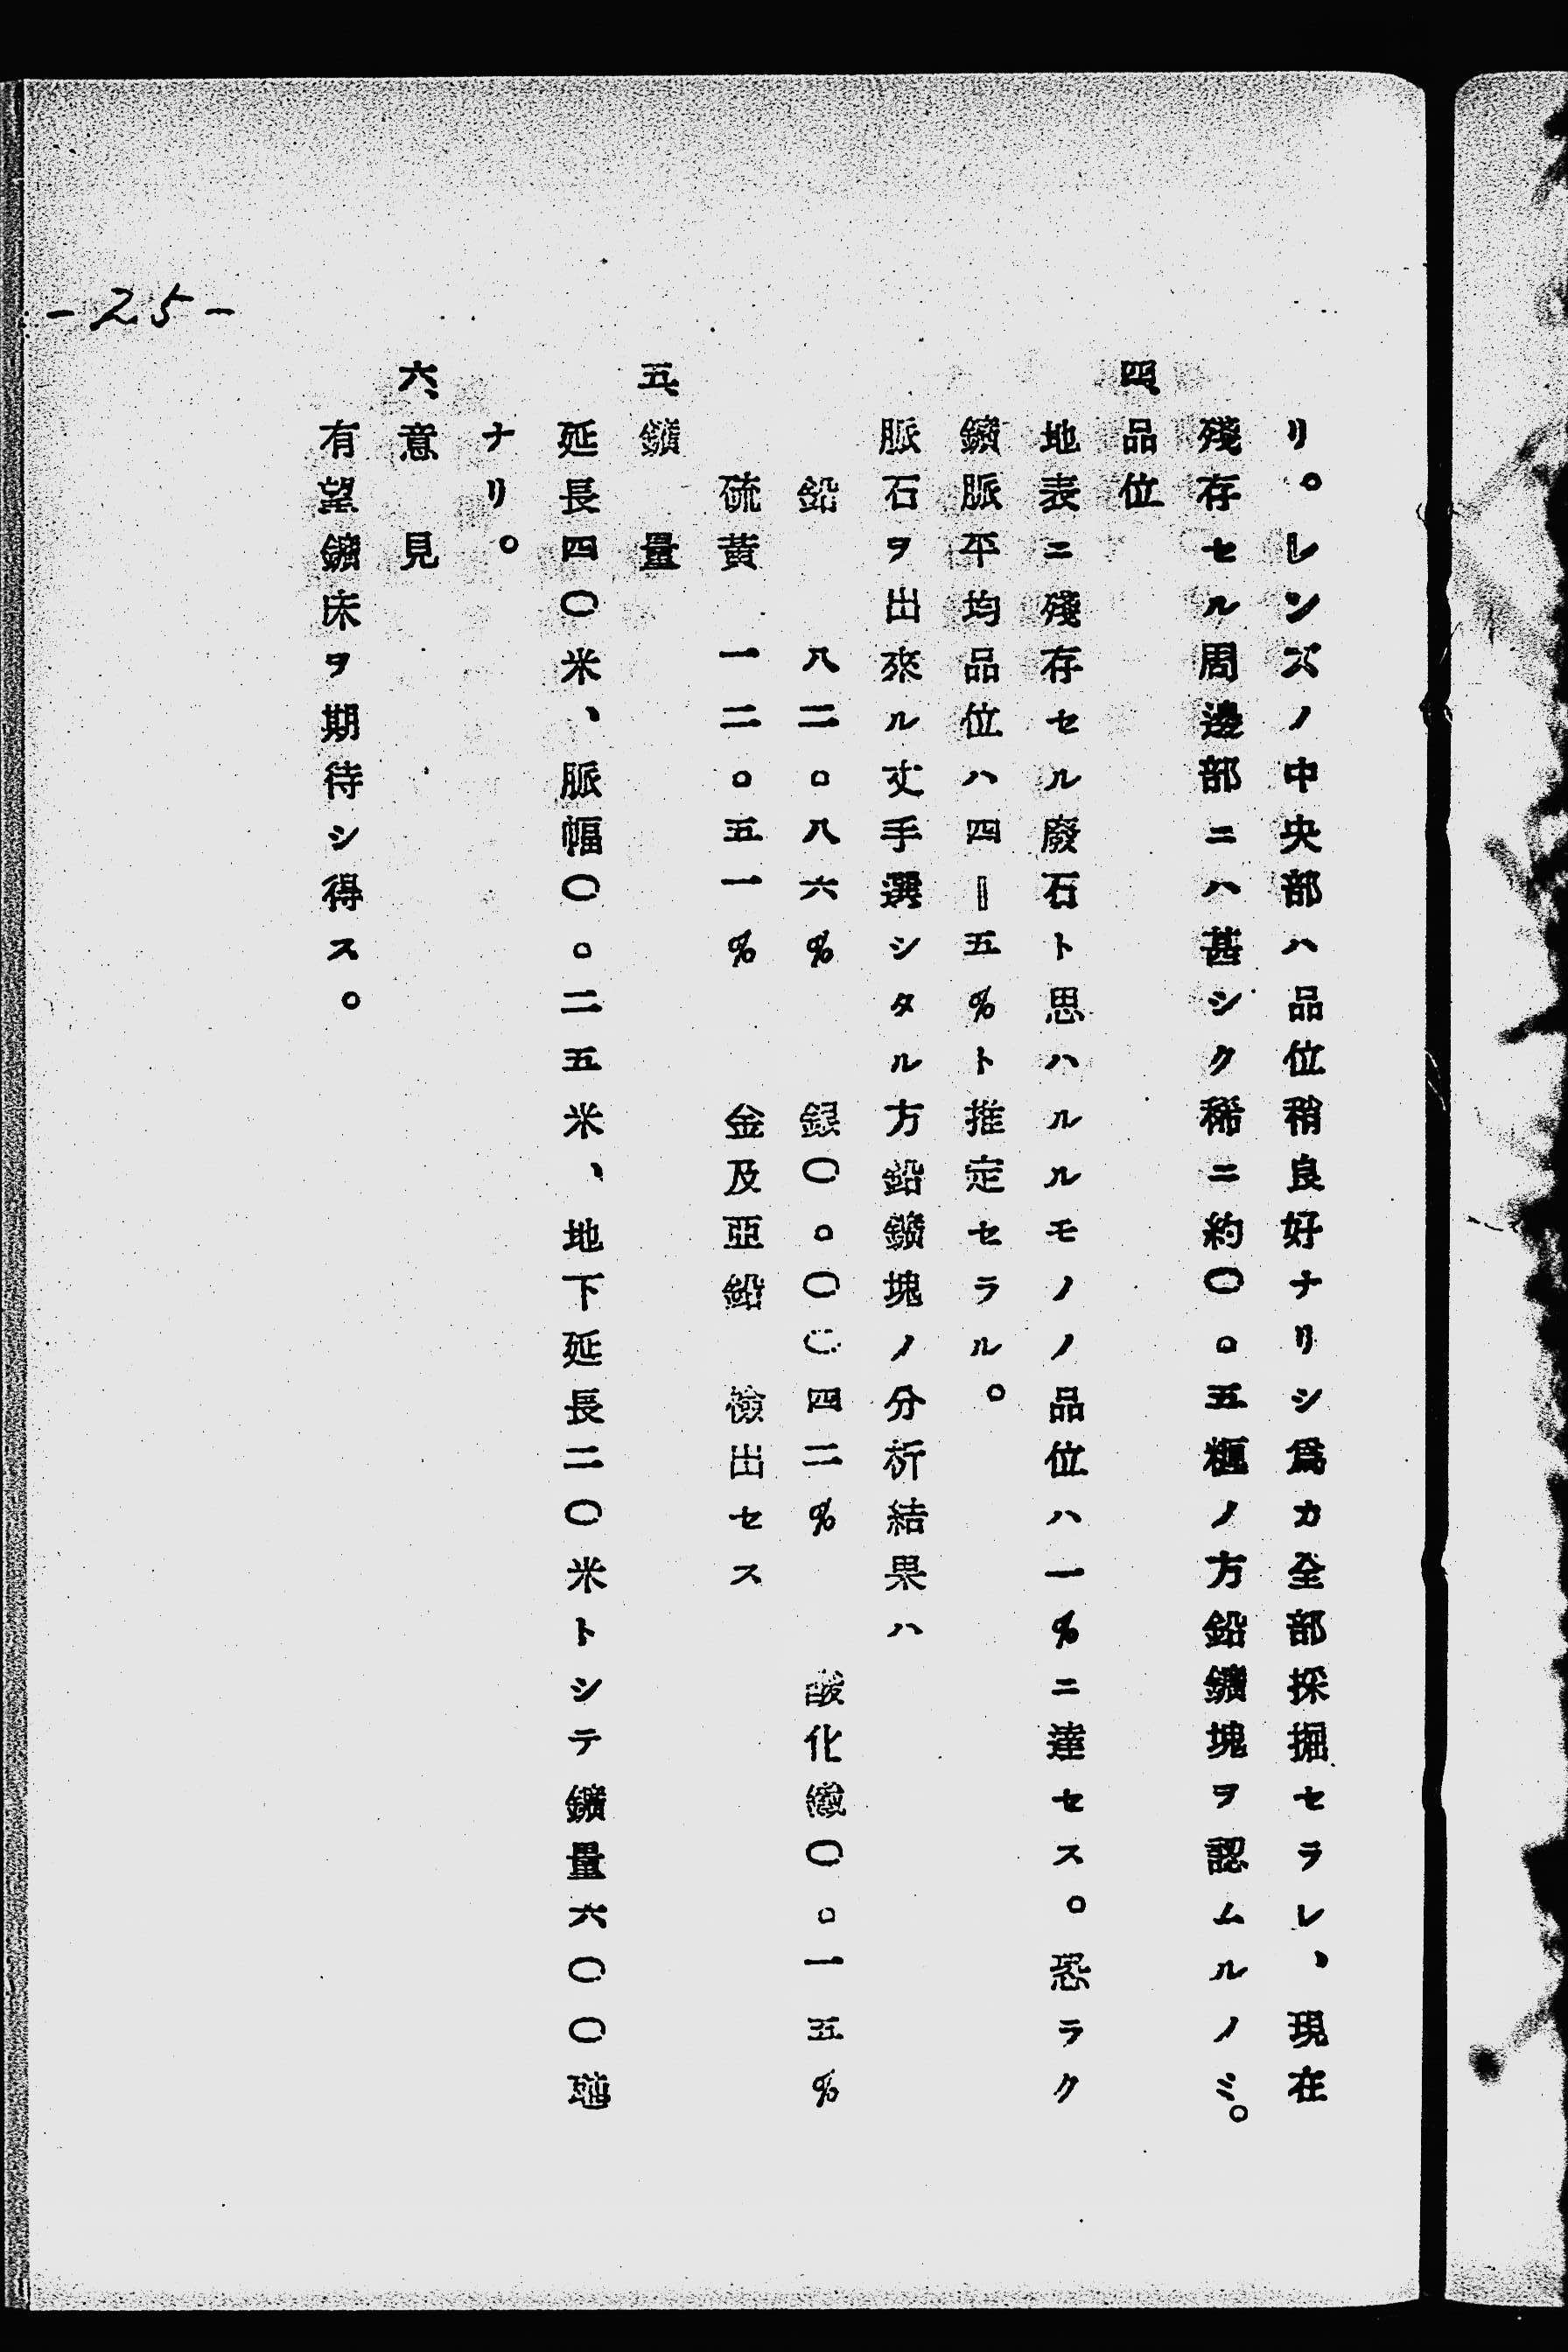 リ。レンズノ中央部ハ品位稍良好ナリシ爲カ全部採掘セラレ、現在
殘存セル周邊部ニハ甚シク稀ニ約〇。五糎ノ方鉛鑛塊ヲ認ムルノミ。
四、品位
地表ニ殘存セル廢石ト思ハルルモノノ品位ハ一%ニ達セス。恐ラク
鑛脈平均品位ハ四―五%ト推定セラル。
脈石ヲ出來ル丈手選シタル方鉛鑛塊ノ分析結果ハ
鉛　八二。八六%　銀〇。〇〇四二%　酸化〇。一五%
硫黄　一二。五一%　金及亞鉛　檢出セス
五、鑛量
延長四〇米、脈幅〇。二五米、地下延長二〇米トシテ鑛量六〇〇瓲
ナリ。
六、意見
有望鑛床ヲ期待シ得ス。
-25-